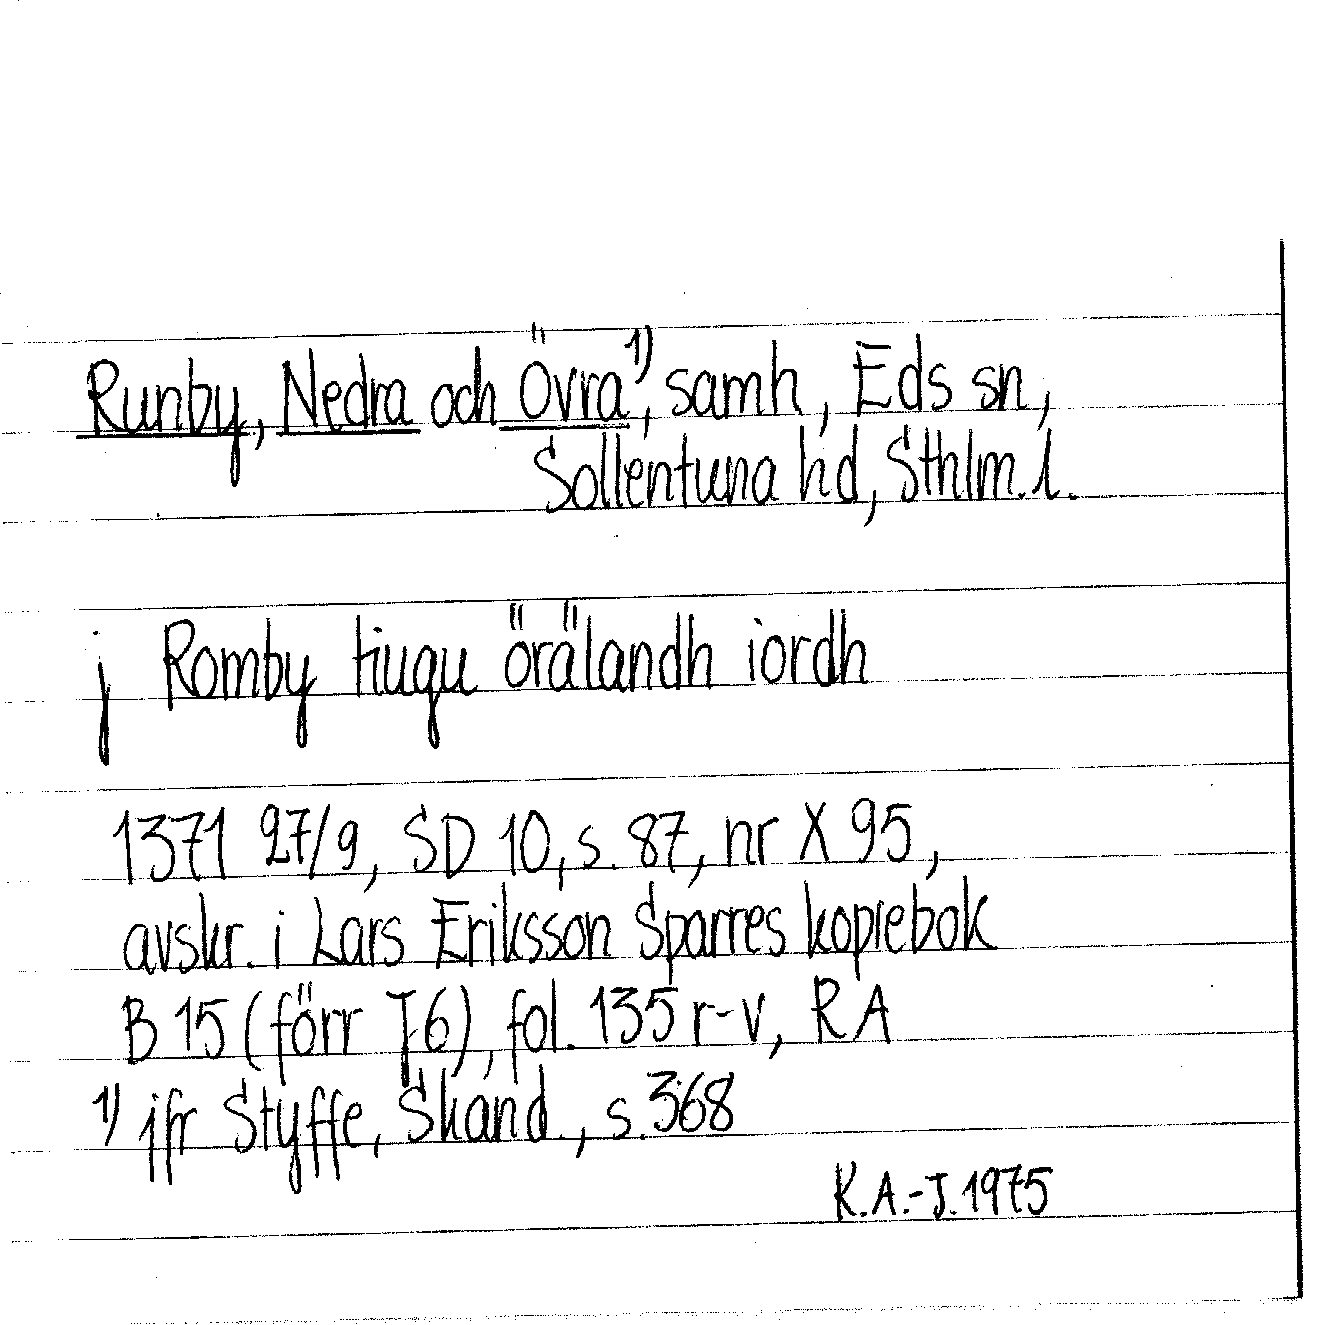 Runby, Nedra och Övra¹⁾, samh, Eds sn,
Sollentuna hd, Sthlm. l.
j Romby tiugu örälandh iordh
1371 27/9, SD 10, s. 87, nr X 95,
avskr. i Lars Eriksson Sparres kopiebok
B 15 (förr J 6), fol. 135 r-v, RA
¹⁾ jfr Styffe, Skand., s. 368
K.A.-J. 1975